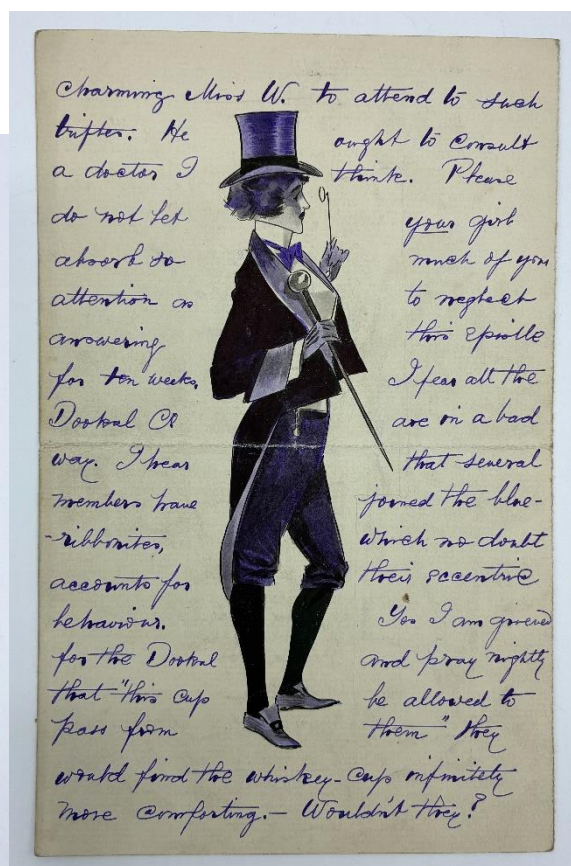 charming Miss W. to attend to such
trifles. He ought to consult
a doctor I think. Please
do not let your girl
absorb so much of your
attention as to neglect
answering this epistle
for ten weeks, I fear all the
Dookul Co are in a bad
way. I hear that several
members have joined the blue-
-ribbonites, which no doubt
accounts for their eccentric
behaviour. Yes I am grieved
for the Dookul and pray nightly
that "this cup be allowed to
pass from them" they
would find the whiskey-cup infinitely
more comforting. - Wouldn't they?